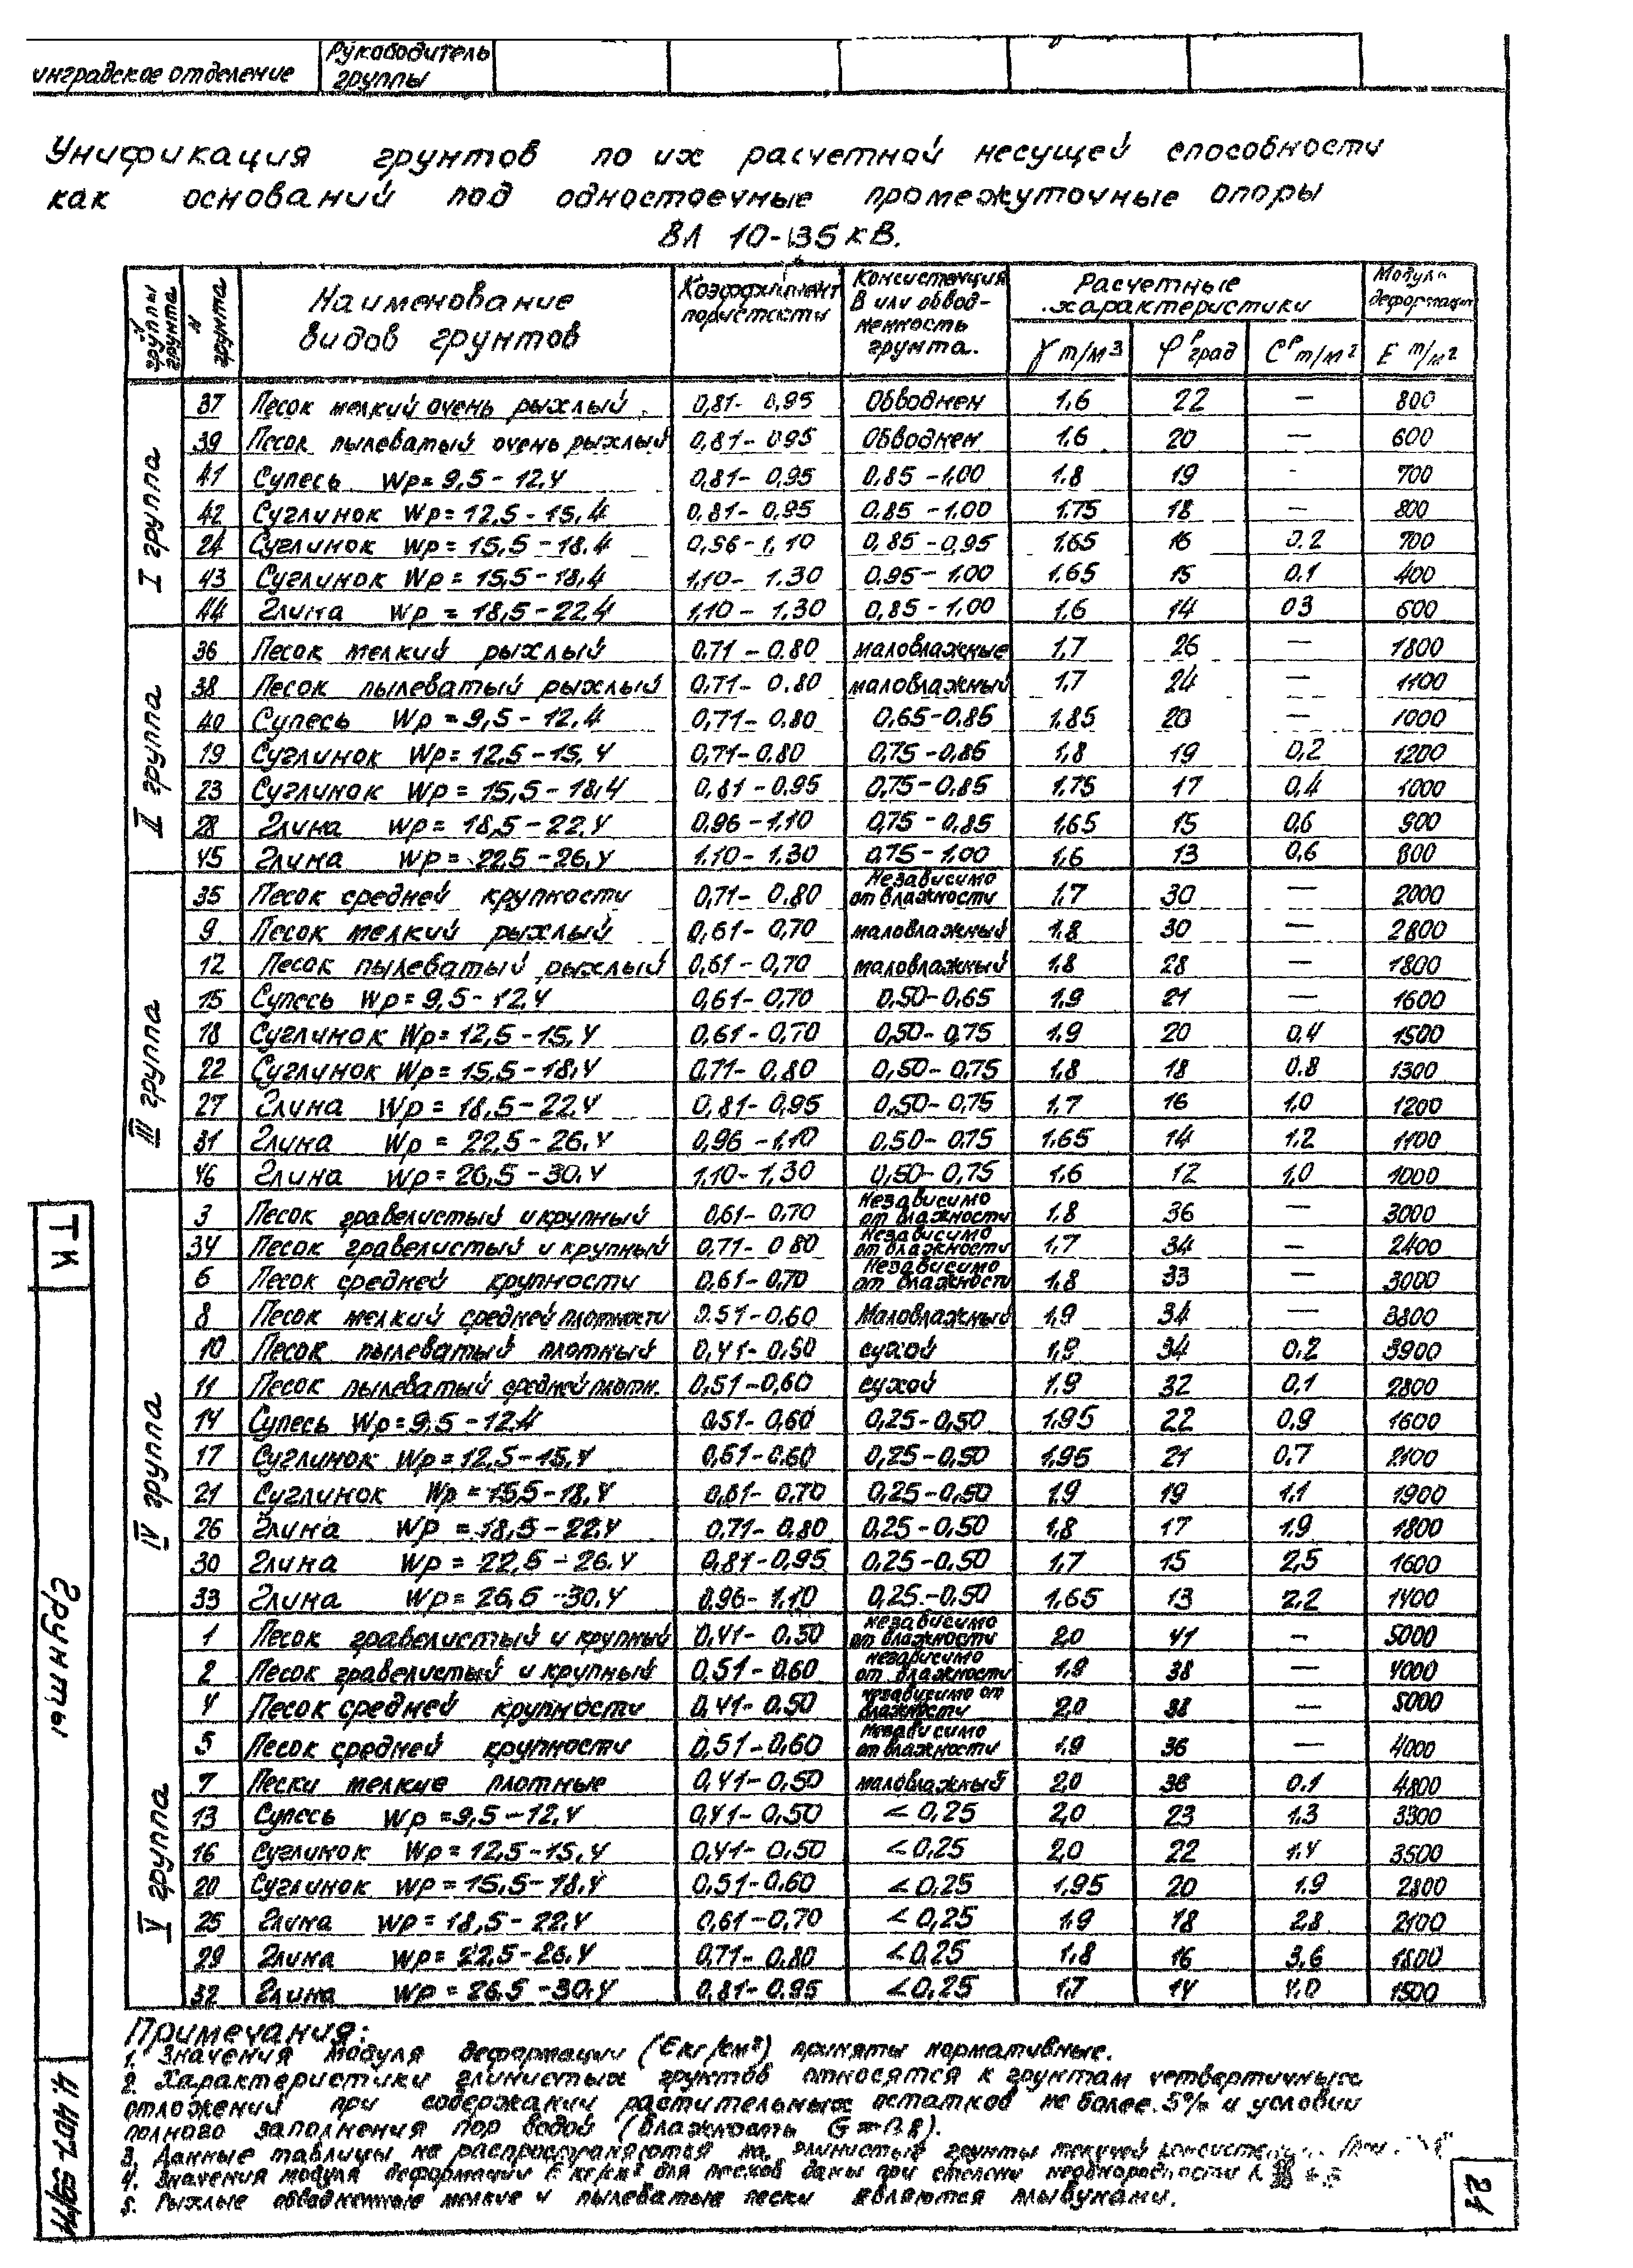 инградское отделение
Руководитель группы
Унификация грунтов по их расчетной несущей способности
как оснований под одностоечные промежуточные опоры
ВЛ 10-35 кВ.
№ группы грунта
N грунта
Наименование видов грунтов
Коэффициент пористости
Консистенция В или обвод-ненность грунта.
Расчетные характеристики
γ т/м3
φр град
Ср т/м2
Модули деформации
Е т/м2
I группа
37 Песок мелкий очень рыхлый 0,81- 0,95 Обводнен 1,6 22 — 800
39 Песок пылеватый очень рыхлый 0,81- 0,95 Обводнен 1,6 20 — 600
41 Супесь Wp= 9,5 - 12,4 0,81- 0,95 0,85 -1,00 1,8 19 - 700
42 Суглинок Wp= 12,5 - 15,4 0,81- 0,95 0,85 -1,00 1,75 18 — 800
24 Суглинок Wp= 15,5 - 18,4 0,96-1,10 0,85 -0,95 1,65 16 0,2 700
43 Суглинок Wp= 15,5 - 18,4 1,10- 1,30 0,95- 1,00 1,65 15 0,1 400
44 Глина Wp = 18,5-22,4 1,10 - 1,30 0,85 -1,00 1,6 14 03 600
II группа
36 Песок мелкий рыхлый 0,71 - 0,80 маловлажные 1,7 26 — 1800
38 Песок пылеватый рыхлый 0,71- 0,80 маловлажный 1,7 24 — 1100
40 Супесь Wp = 9,5 - 12,4 0,71- 0,80 0,65-0,85 1,85 20 — 1000
19 Суглинок Wp= 12,5-15,4 0,71-0,80 0,75 -0,85 1,8 19 0,2 1200
23 Суглинок Wp= 15,5-18,4 0,81 -0,95 0,75-0,85 1,75 17 0,4 1000
28 Глина Wp= 18,5-22,4 0,96 -1,10 0,75 - 0,85 1,65 15 0,6 900
45 Глина Wp= 22,5-26,4 1,10- 1,30 0,75- 1,00 1,6 13 0,6 800
III группа
35 Песок средней крупности 0,71- 0,80 Независимо от влажности 1,7 30 — 2000
9 Песок мелкий рыхлый 0,61- 0,70 маловлажный 1,8 30 — 2800
12 Песок пылеватый рыхлый 0,61- 0,70 маловлажный 1,8 28 — 1800
15 Супесь Wp= 9,5- 12,4 0,61- 0,70 0,50-0,65 1,9 21 — 1600
18 Суглинок Wp= 12,5-15,4 0,61- 0,70 0,50- 0,75 1,9 20 0,4 1500
22 Суглинок Wp= 15,5-18,4 0,71- 0,80 0,50- 0,75 1,8 18 0,8 1300
27 Глина Wp = 18,5-22,4 0,81- 0,95 0,50- 0,75 1,7 16 1,0 1200
31 Глина Wp = 22,5-26,4 0,96 -1,10 0,50- 0,75 1,65 14 1,2 1100
46 Глина Wp= 26,5-30,4 1,10- 1,30 0,50- 0,75 1,6 12 1,0 1000
IV группа
3 Песок гравелистый и крупный 0,61- 0,70 Независимо от влажности 1,8 36 — 3000
34 Песок гравелистый и крупный 0,71- 0 80 Независимо от влажности 1,7 34 — 2400
6 Песок средней крупности 0,61-0,70 Независимо от влажности 1,8 33 — 3000
8 Песок мелкий средней плотности 0,51-0,60 Маловлажный 1,9 34 — 3800
10 Песок пылеватый плотный 0,41- 0,50 сухой 1,9 34 0,2 3900
11 Песок пылеватый средней плотн. 0,51-0,60 сухой 1,9 32 0,1 2800
14 Супесь Wp=9,5 -12,4 0,51- 0,60 0,25-0,50 1,95 22 0,9 1600
17 Суглинок Wp=12,5-15,4 0,51-0,60 0,25-0,50 1,95 21 0,7 2100
21 Суглинок Wp =15,5-18,4 0,61- 0,70 0,25-0,50 1,9 19 1,1 1900
26 Глина Wp =18,5-22,4 0,71- 0,80 0,25-0,50 1,8 17 1,9 1800
30 Глина Wp = 22,5-26,4 0,81-0,95 0,25-0,50 1,7 15 2,5 1600
33 Глина Wp= 26,5-30,4 0,96- 1,10 0,25-0,50 1,65 13 2,2 1400
V группа
1 Песок гравелистый и крупный 0,41- 0,50 независимо от влажности 2,0 41 — 5000
2 Песок гравелистый и крупный 0,51-0,60 независимо от влажности 1,9 38 — 4000
4 Песок средней крупности 0,41- 0,50 независимо от влажности 2,0 38 — 5000
5 Песок средней крупности 0,51-0,60 Независимо от влажности 1,9 36 — 4000
7 Пески мелкие плотные 0,41-0,50 маловлажный 2,0 36 0,1 4800
13 Супесь Wp =9,5-12,4 0,41-0,50 < 0,25 2,0 23 1,3 3300
16 Суглинок Wp = 12,5-15,4 0,41- 0,50 < 0,25 2,0 22 1,4 3500
20 Суглинок Wp = 15,5-18,4 0,51-0,60 < 0,25 1,95 20 1,9 2800
25 Глина Wp = 18,5-22,4 0,61-0,70 < 0,25 1,9 18 2,8 2100
29 Глина Wp= 22,5-26,4 0,71- 0,80 <0,25 1,8 16 3,6 1800
32 Глина Wp = 26,5 -30,4 0,81- 0,95 <0,25 1,7 14 4,0 1500
Примечания:
1. Значения модуля деформации (Екг/см²) приняты нормативные.
2. Характеристики глинистых грунтов относятся к грунтам четвертичных
отложений при содержании растительных остатков не более 5% и условии
полного заполнения пор водой (влажность
3. Данные таблицы не распространяются на глинистые грунты текучей
4. Значения модуля деформации Е кг/см² для песков даны при степени неоднородности
5. Рыхлые обводненные мелкие и пылеватые пески являются плывунами.
ТК
Грунты
4.407
21